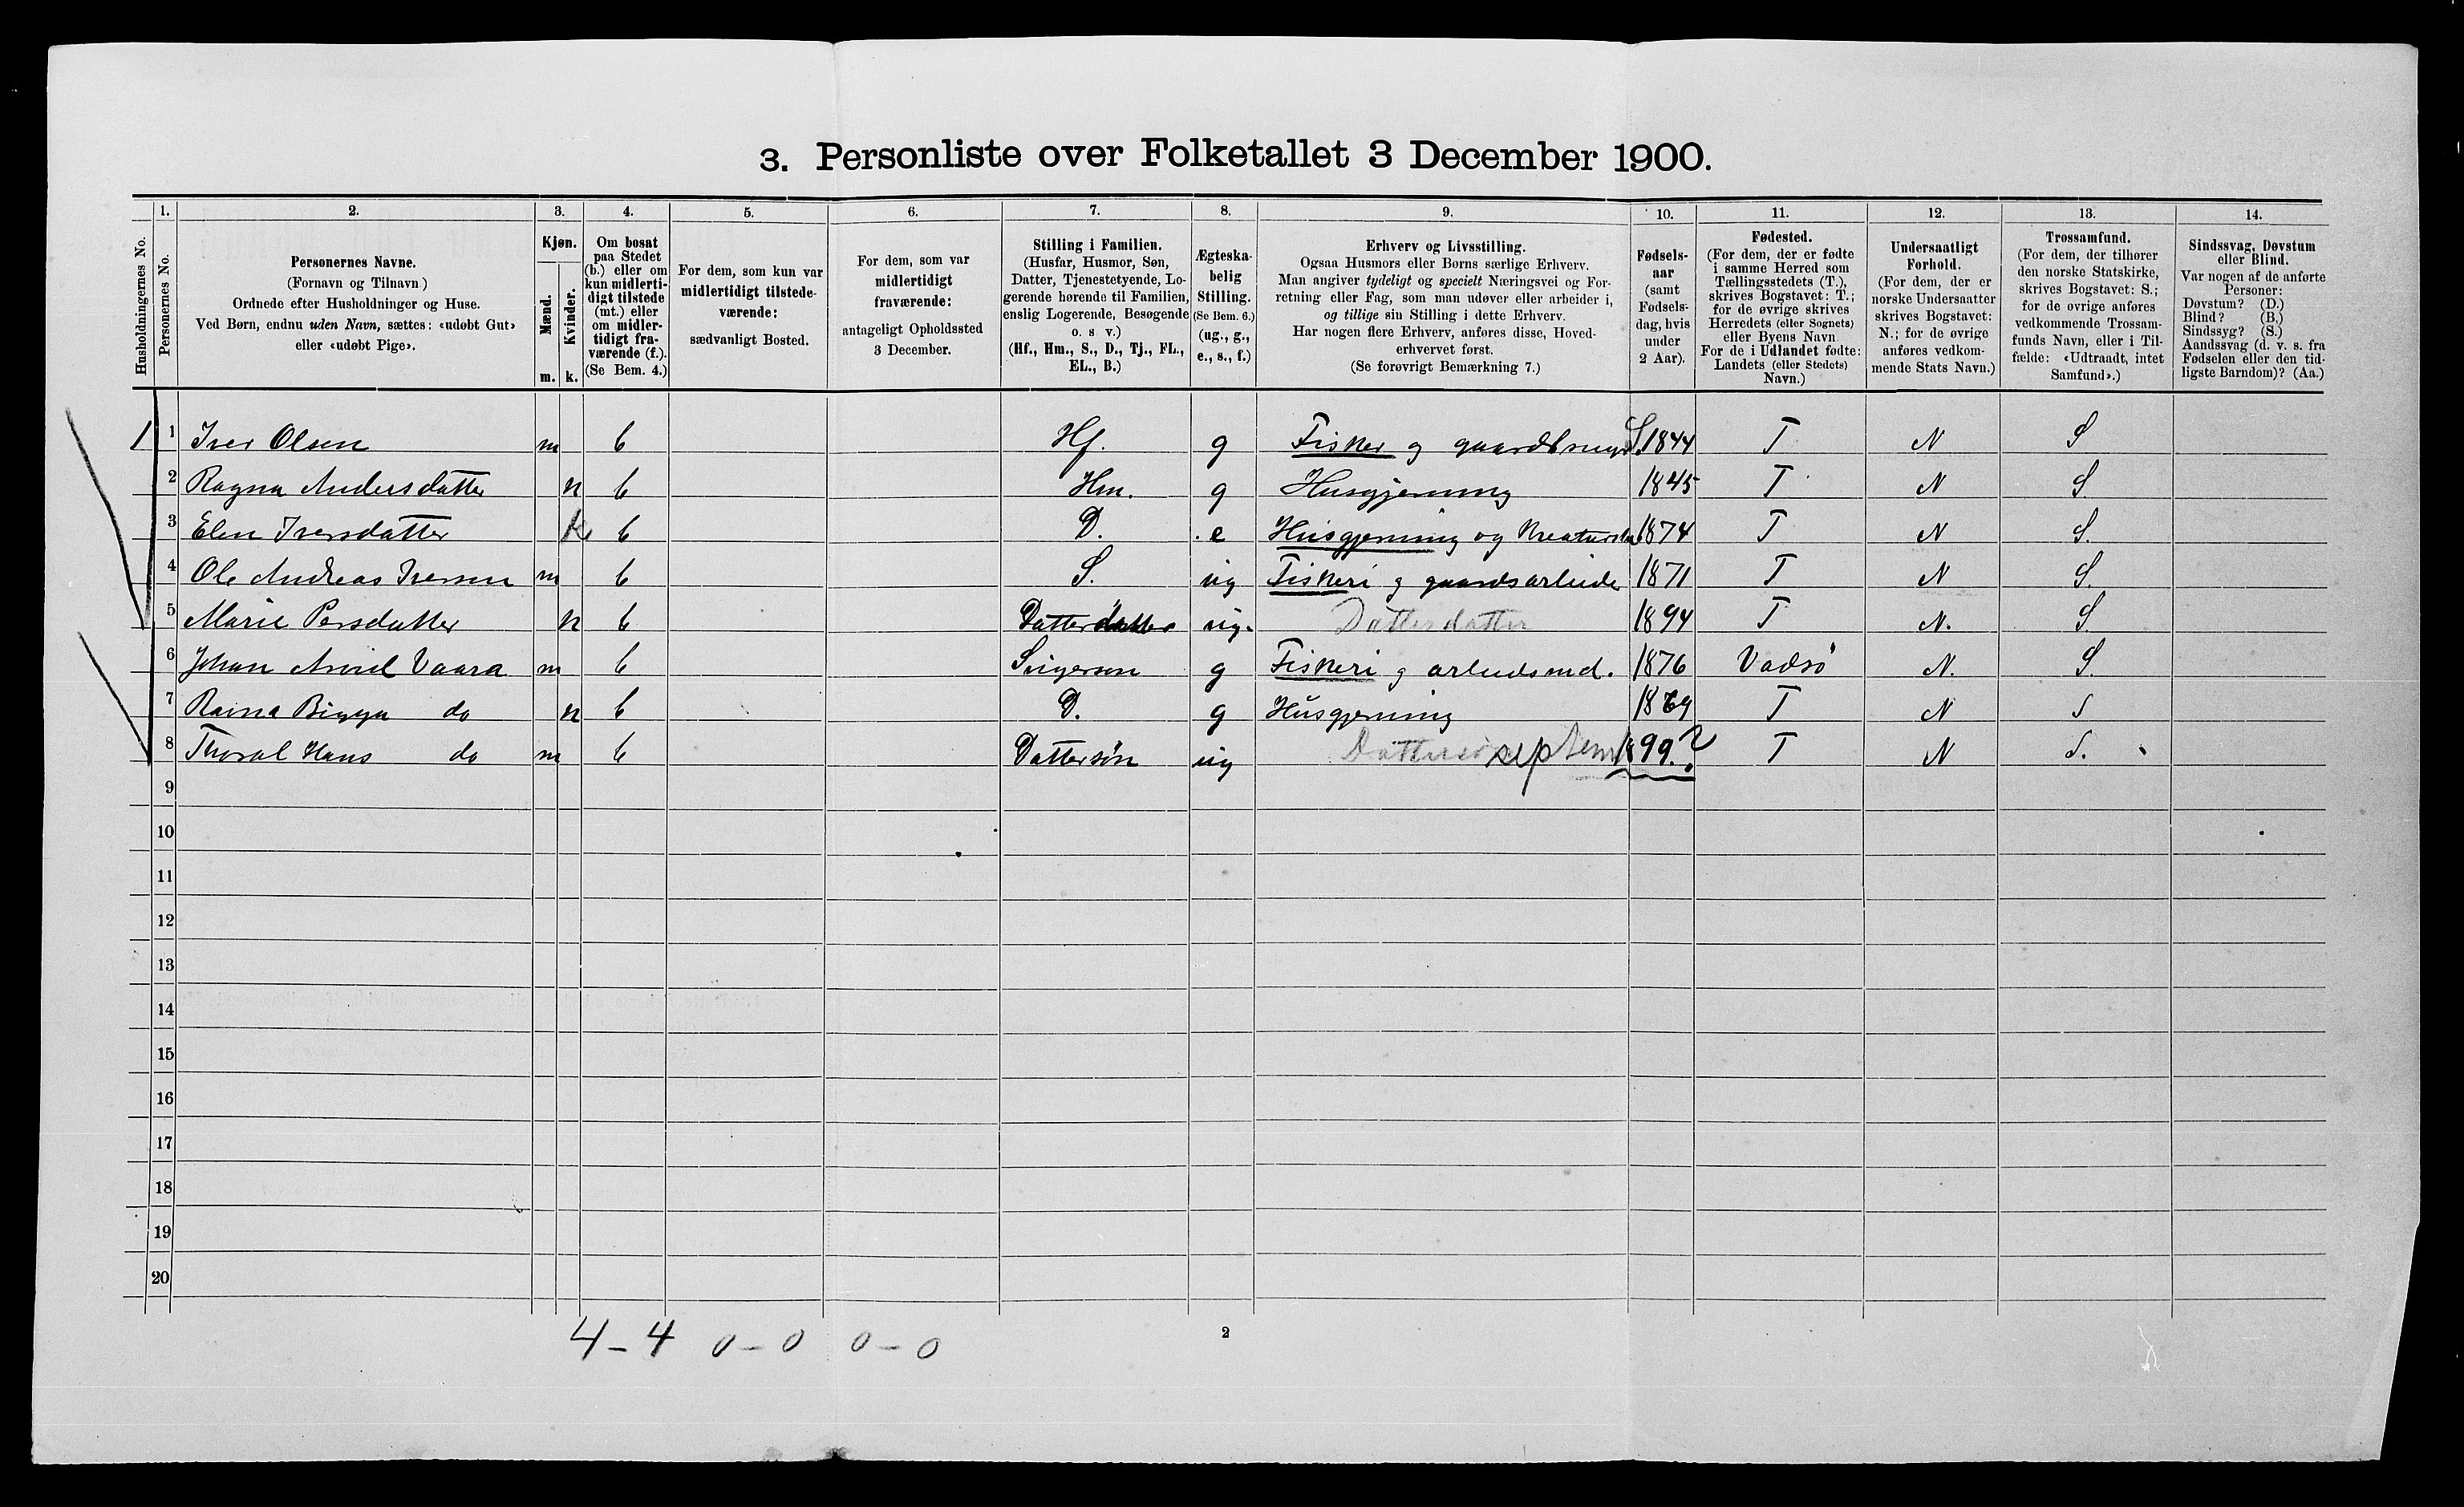 3. Personliste over Folketallet 3 December 1900.
Husholdningernes No.
1.
Personernes No.
2.
Personernes Navne.
(Fornavn og Tilnavn)
Ordnede efter Husholdninger og Huse.
Ved Børn, endnu uden Navn, sættes: «udøbt Gut»
eller «udøbt Pige».
3.
Kjøn.
Mænd.
Kvinder.
m. k.
4.
Om bosat
paa Stedet
(b.) eller om
kun midlerti-
digt tilstede
(mt.) eller
om midler-
tidigt fra-
værende (f.).
(Se Bem. 4.)
5.
For dem, som kun var
midlertidigt tilstede-
værende:
sædvanligt Bosted.
6.
For dem, som var
midlertidigt
fraværende:
antageligt Opholdssted
3 December.
7.
Stilling i Familien.
(Husfar, Husmor, Søn,
Datter, Tjenestetyende, Lo-
gerende hørende til Familien,
enslig Logerende, Besøgende
o. s v.)
(Hf., Hm., S., D., Tj., FL.,
EL., B.)
8.
Ægteska-
belig
Stilling.
(Se Bem. 6.)
(ug., g.,
e., s., f.)
9.
Erhverv og Livsstilling.
Ogsaa Husmors eller Børns særlige Erhverv.
Man angiver tydeligt og specielt Næringsvei og For-
retning eller Fag, som man udøver eller arbeider i,
og tillige sin Stilling i dette Erhverv.
Har nogen flere Erhverv, anføres disse, Hoved-
erhvervet først.
(Se forøvrigt Bemærkning 7.)
10.
Fødsels-
aar
(samt
Fødsels-
dag, hvis
under
2 Aar).
11.
Fødested.
(For dem, der er fødte
i samme Herred som
Tællingsstedets (T.),
skrives Bogstavet: T.;
for de øvrige skrives
Herredets (eller Sognets)
eller Byens Navn
For de i Udlandet fødte:
Landets (eller Stedets)
Navn.)
12.
Undersaatligt
Forhold.
(For dem, der er
norske Undersaatter
skrives Bogstavet:
N.; for de øvrige
anføres vedkom-
mende Stats Navn.)
13.
Trossamfund.
(For dem, der tilhører
den norske Statskirke,
skrives Bogstavet: S.;
for de øvrige anføres
vedkommende Trossam-
funds Navn, eller i Til-
fælde: «Udtraadt, intet
Samfund».)
14.
Sindssvag, Døvstum
eller Blind.
Var nogen af de anførte
Personer:
Døvstum? (D.)
Blind? (B.)
Sindssyg? (S.)
Aandssvag (d. v. s. fra
Fødselen eller den tid-
ligste Barndom)? (Aa.)
1 1 Iver Olsen m b Hf. g Fisker og S. 1844 T N S
2 Ragna Andersdatter k b Hm. g Husgjerning 1845 T N S
3 Elen Iversdatter k b D. e Husgjerning og 1874 T N S.
4 Ole Andreas Iversen m b S. ug Fiskeri og gaardsarbeide 1871 T N S.
5 Marie Persdatter k b Datterdatter ug. Datterdatter 1894 T N. S.
6 Johan Arvid Vaara m b Svigersøn g Fiskeri og arbeidsmd. 1876 Vadsø N. S.
7 Raina Bigga do k b D. g Husgjerning 1869 T N S
8 Hans do m b Dattersøn ug 1899.? T N S.
9
10
11
12
13
14
15
16
17
18
19
20
4 - 4 0 - 0 0 - 0
2